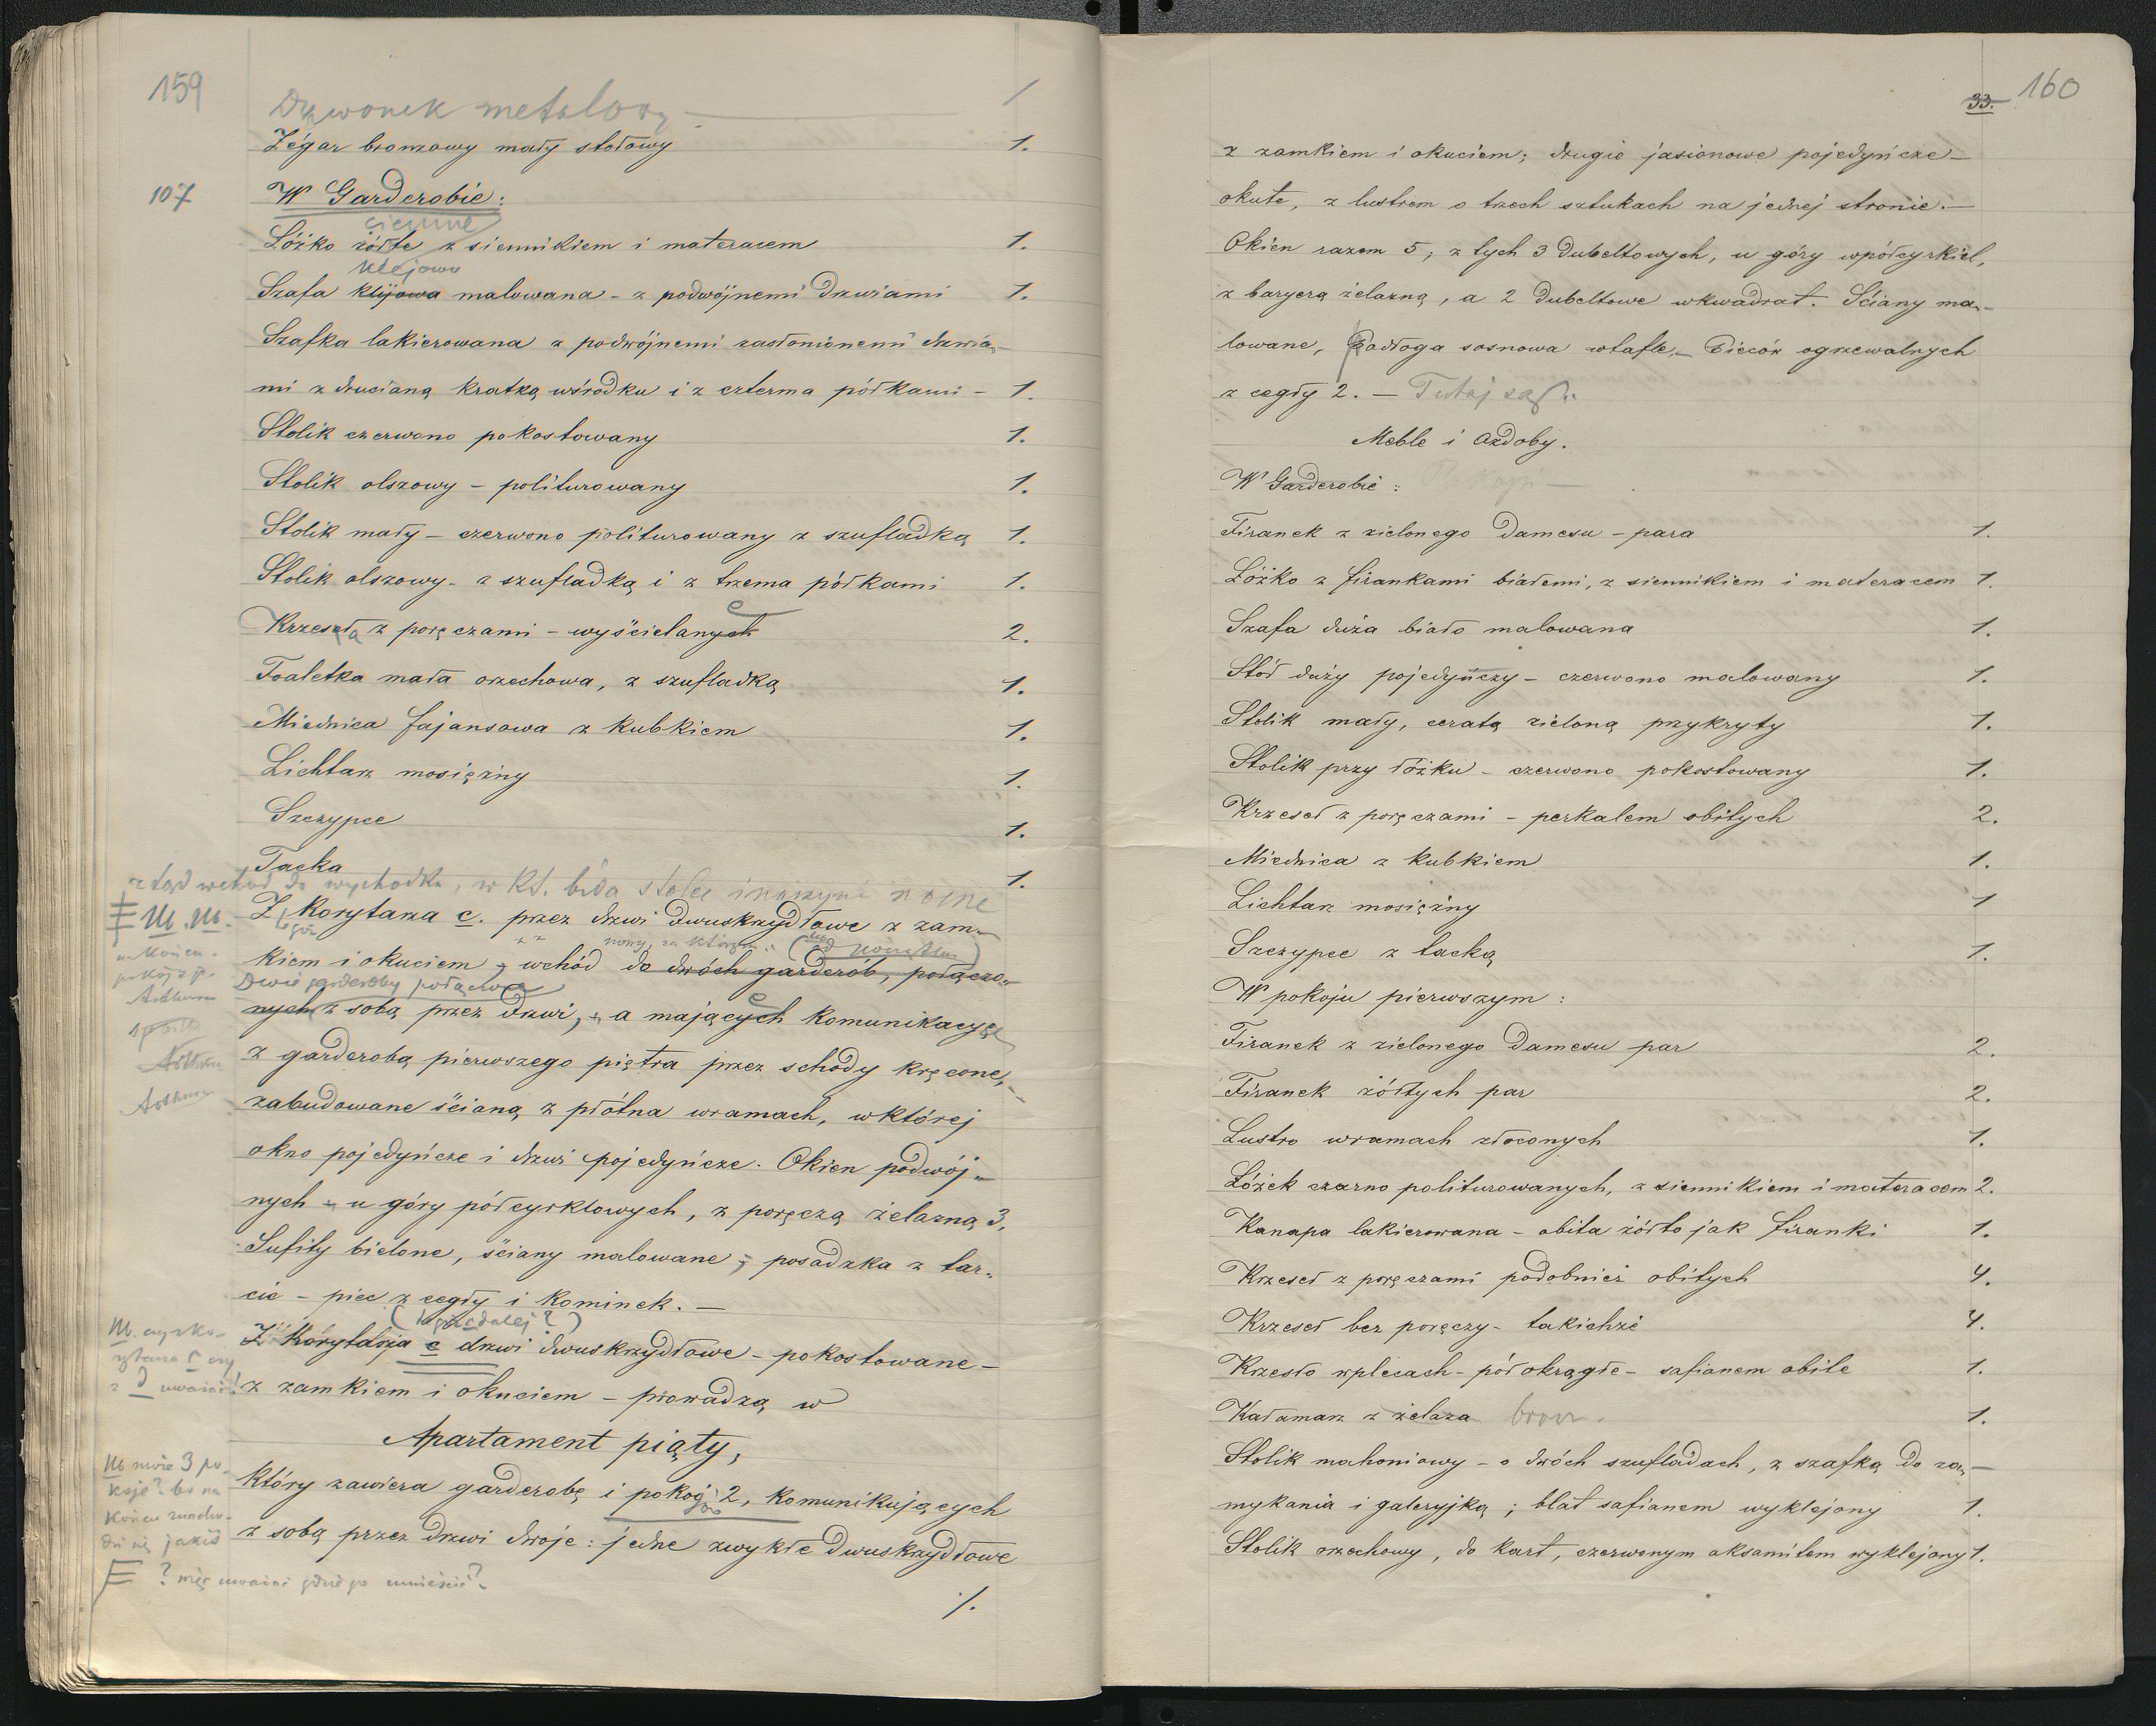 159
Dzwonek metalowy — 1
Zégar bronzowy mały stołowy 1.
107 W Garderobie:
ciemne
Łóżko żółte z siennikiem i materacem 1.
klejowo
Szafa klijowa malowana - z podwójnemi drzwiami 1.
Szafka lakierowana z podwójnemi zasłonionemi drzwia-
mi z drucianą kratką wśrodku i z czterma półkami - 1.
Stolik czerwono pokostowany 1.
Stolik olszowy - politurowany 1.
Stolik mały - czerwono politurowany z szufladką 1.
Stolik olszowy - z szufladką i z trzema półkami 1.
Krzeseł z poręczami - wyścielanych 2.
Toaletka mała orzechowa, z szufladką 1.
Miednica fajansowa z kubkiem 1.
Lichtarz mosiężny 1.
Szczypce 1.
Tacka 1.
ztąd wchód do wychodka, w kt.
Z Korytarza c. przez drzwi dwuskrzydłowe z zam-
kiem i okuciem, wchód do dwóch garderób, połączo-
Dwie garderoby połączone
nych z sobą przez drzwi, a mających komunikacyę
z garderobą pierwszego piętra przez schody kręcone,
zabudowane ścianą z płótna wramach, wktórej
okno pojedyńcze i drzwi pojedyńcze. Okien podwój-
nych u góry półcyrklowych, z poręczą żelazną 3.
Sufity bielone, ściany malowane, posadzka z tar-
cic - piec z cegły i kominek. —
Z Korytarza c drzwi dwuskrzydłowe - pokostowane -
z zamkiem i okuciem - prowadzą w
Apartament piąty,
Który zawiera garderobę i pokoj 2, komunikujących
z sobą przez drzwi dwoje: jedne zwykłe dwuskrzydłowe
Nb może 3 po-
koje? bo na
końcu
jakiś
./.
33. 160
z zamkiem i okuciem; drugie jasionowe pojedyńcze -
okute, z lustrem o trzech sztukach na jednej stronie. —
Okien razem 5, z tych 3 dubeltowych, u góry wpółcyrkiel,
z baryerą żelazną, a 2 dubeltowe wkwadrat. Ściany ma-
lowane, Podłoga sosnowa wtafle. — Pieców ogrzewalnych
z cegły 2. — Tutaj są:
Meble i Ozdoby.
W Garderobie:
Firanek z zielonego Damesu - para 1.
Łóżko z firankami białemi, z siennikiem i materacem 1.
Szafa duża biało malowana 1.
Stół duży pojedyńczy - czerwono malowany 1.
Stolik mały, ceratą zieloną przykryty 1.
Stolik przy łóżku - czerwono pokostowany 1.
Krzeseł z poręczami - perkalem obitych 2.
Miednica z kubkiem 1.
Lichtarz mosiężny 1
Szczypce z tacką 1.
W pokoju pierwszym:
Firanek z zielonego Damesu par 2.
Firanek żółtych par 2.
Lustro wramach złoconych 1.
Łóżek czarno politurowanych, z siennikiem i materacem 2.
Kanapa lakierowana - obita żółto jak firanki 1.
Krzeseł z poręczami podobnież obitych 4.
Krzeseł bez poręczy - takichże 4.
Krzesło wplecach - półokrągłe - safianem obite 1.
Kałamarz z żelaza 1.
Stolik mahoniowy - o dwóch szufladach, z szafką do za-
mykania i galeryjką; blat safianem wyklejony 1.
Stolik orzechowy, do kart, czerwonym aksamitem wyklejony 1.